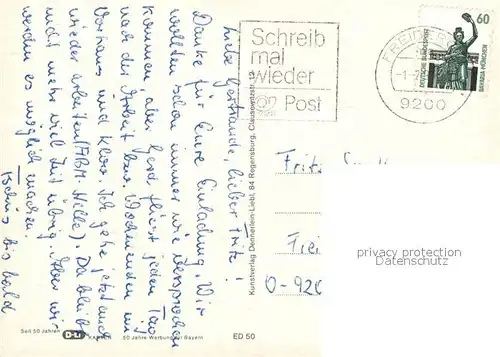 Liebe Gertraude, lieber Fritz!
Danke für Eure Einladung. Wir
wollten schon immer wie versprochen
kommen, aber Gerd fliegt jeden Tag
nach der Arbeit bzw. Wochenenden im
Vorhaus und Klos. Ich gehe jetzt auch
wieder arbeiten (ABM-Stelle). Da bleibt
nicht mehr viel Zeit übrig. Aber wir
werden es möglich machen.
Tschüs bis bald
Schreib
mal
wieder
Post
FREIBERG
9200
60
DEUTSCHE BUNDESPOST
BAVARIA MÜNCHEN
Kunstverlag Dennerlein-Liebl, 84 Regensburg, Clausewitzstr.
Fritz
Frei
O-920
privacy protection
Datenschutz
Seit 50 Jahren
50 Jahre Werbung für Bayern
ED 50